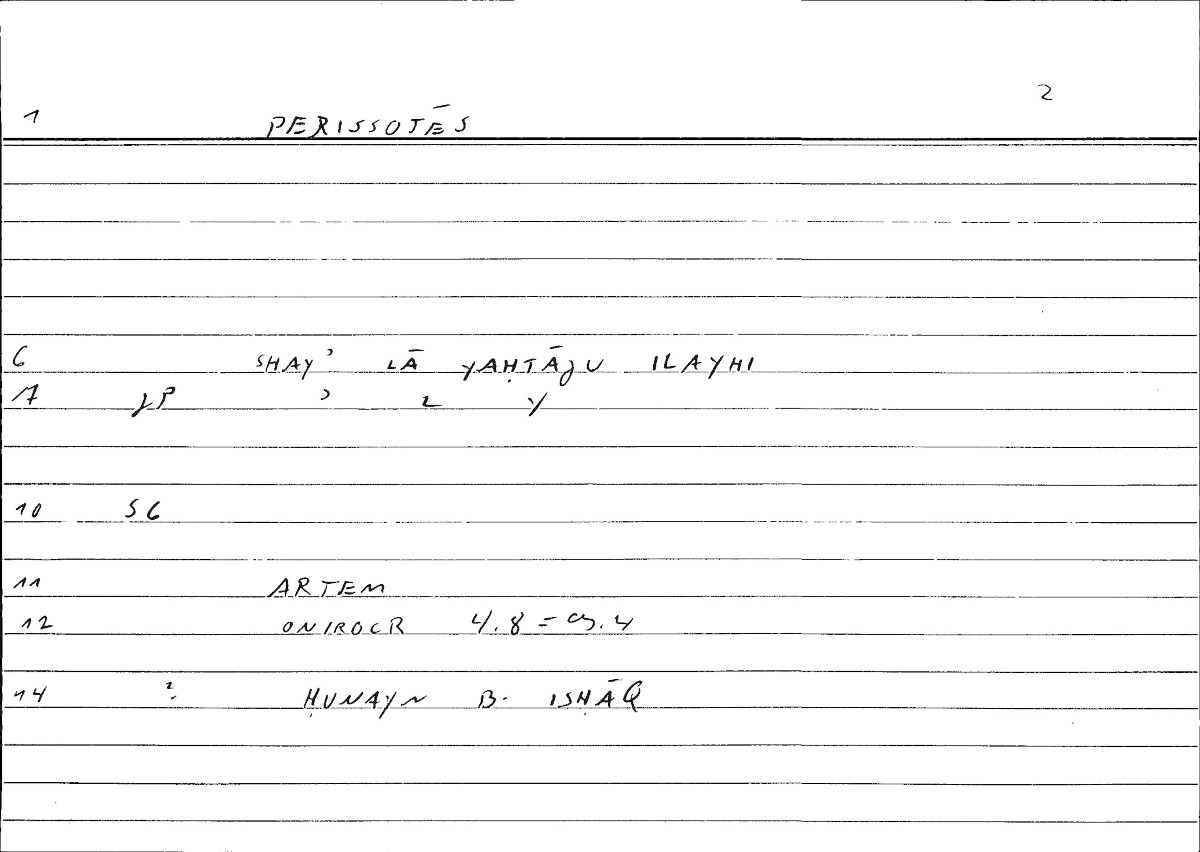 2
1 PERISSOTĒS
6 SHAYʾ LĀ YAḤTĀJU ILAYHI
7 JP ʾ L Y
10 SG
11 ARTEM
12 ONIROCR 4.8 = 4
14 ? ḤUNAYN B. ISḤĀQ